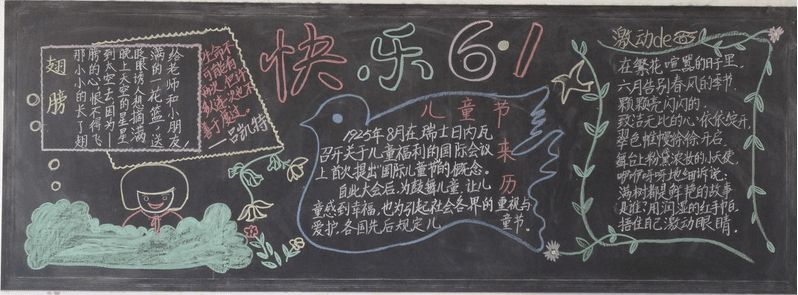 快乐6·1
翅膀
那小小的长了翅
膀的心,恨不得飞
到太空去,因为——
晚上天空的星星
眨眼诱人,想摘满
满的一花篮,送
给老师和小朋友,
——吕凯特
儿童节来历
1925年8月在瑞士日内瓦
召开关于儿童福利的国际会议
上首次提出国际儿童节的概念。
自此大会后,为鼓舞儿童,让儿
童感到幸福,也为引起社会各界的重视与
爱护,各国先后规定儿童节。
激动de
在繁花喧嚣的日子里,
六月告别春风的季节.
颗颗亮闪闪的,
致洁无比的心,依依绽开,
翠色帷幔徐徐开启,
舞台上粉黛浓妆的小天使,
咿咿呀呀地细听说:
满树都是鲜艳的故事
是谁:用润湿的红手帕,
捂住自己激动眼睛.